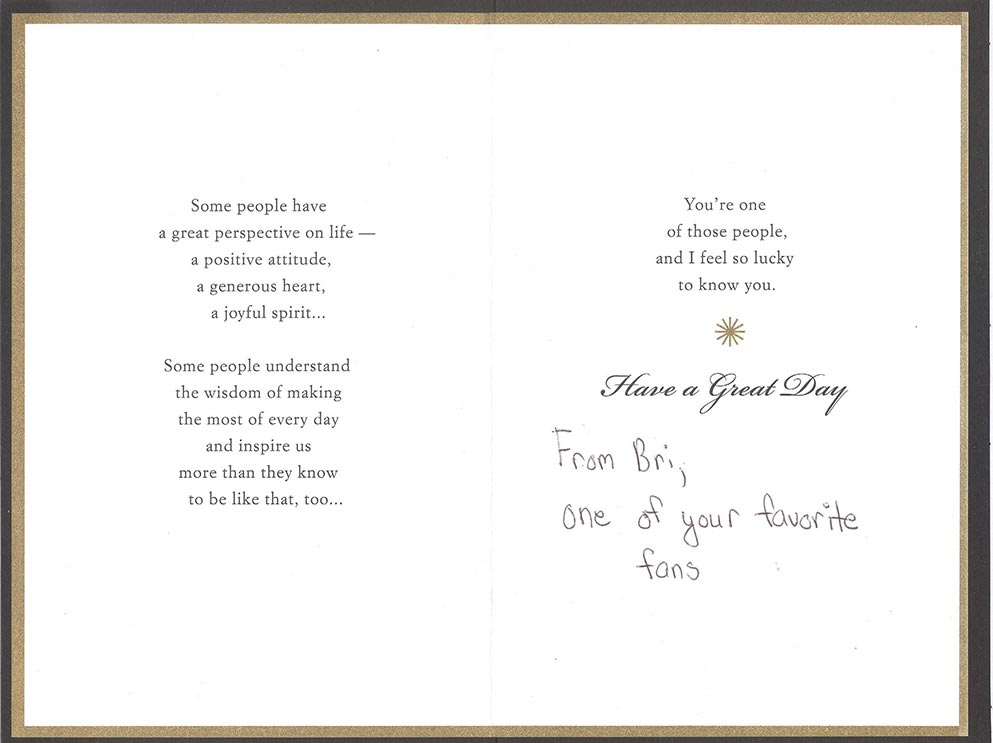 Some people have
a great perspective on life —
a positive attitude,
a generous heart,
a joyful spirit...
Some people understand
the wisdom of making
the most of every day
and inspire us
more than they know
to be like that, too...
You're one
of those people,
and I feel so lucky
to know you.
Have a Great Day
From Bri,
one of your favorite
fans